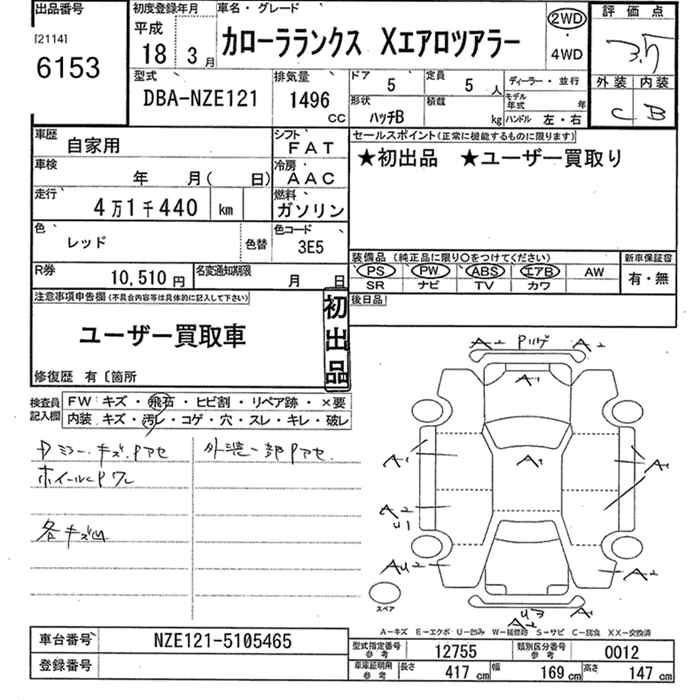 出品番号
[2114]
6153
初度登録年月
平成
18年 3月
車名・グレード
カローラランクス Xエアロツアラー
2WD
・
4WD
評価点
3.5
外装 内装
C B
型式
DBA-NZE121
排気量
1496
CC
ドア
5
定員
5人
形状
ハッチB
積載
kg
ディーラー・並行
モデル年式 年
ハンドル 左・右
車歴
自家用
シフト
FAT
車検
年 月( 日)
冷房
AAC
走行
4万1千440 km
燃料
ガソリン
色
レッド
色替
色コード
3E5
R券
10,510円
名変通知期限
月 日
セールスポイント(正常に機能するものに限ります)
★初出品 ★ユーザー買取り
装備品(純正品に限り○をつけてください)
PS PW ABS エアB AW
SR ナビ TV カワ
新車保証書
有・無
後日品
注意事項申告欄(不具合内容等は具体的に記入して下さい)
ユーザー買取車
初出品
修復歴 有〔箇所
検査員記入欄
FW キズ・飛石・ヒビ割・リペア跡・×要
内装 キズ・汚レ・コゲ・穴・スレ・キレ・破レ
外装一部アセ
各キズ凹
A2 A2
A1
A1
A1 A1
A2
U1
AU2 A2
U3
A2
スペア
A-キズ E-エクボ U-凹み W-補修跡 S-サビ C-腐食 XX-交換済
車台番号
NZE121-5105465
登録番号
型式指定番号 参考
12755
類別区分番号 参考
0012
車庫証明用 参考
長さ 417cm 幅 169cm 高さ 147cm